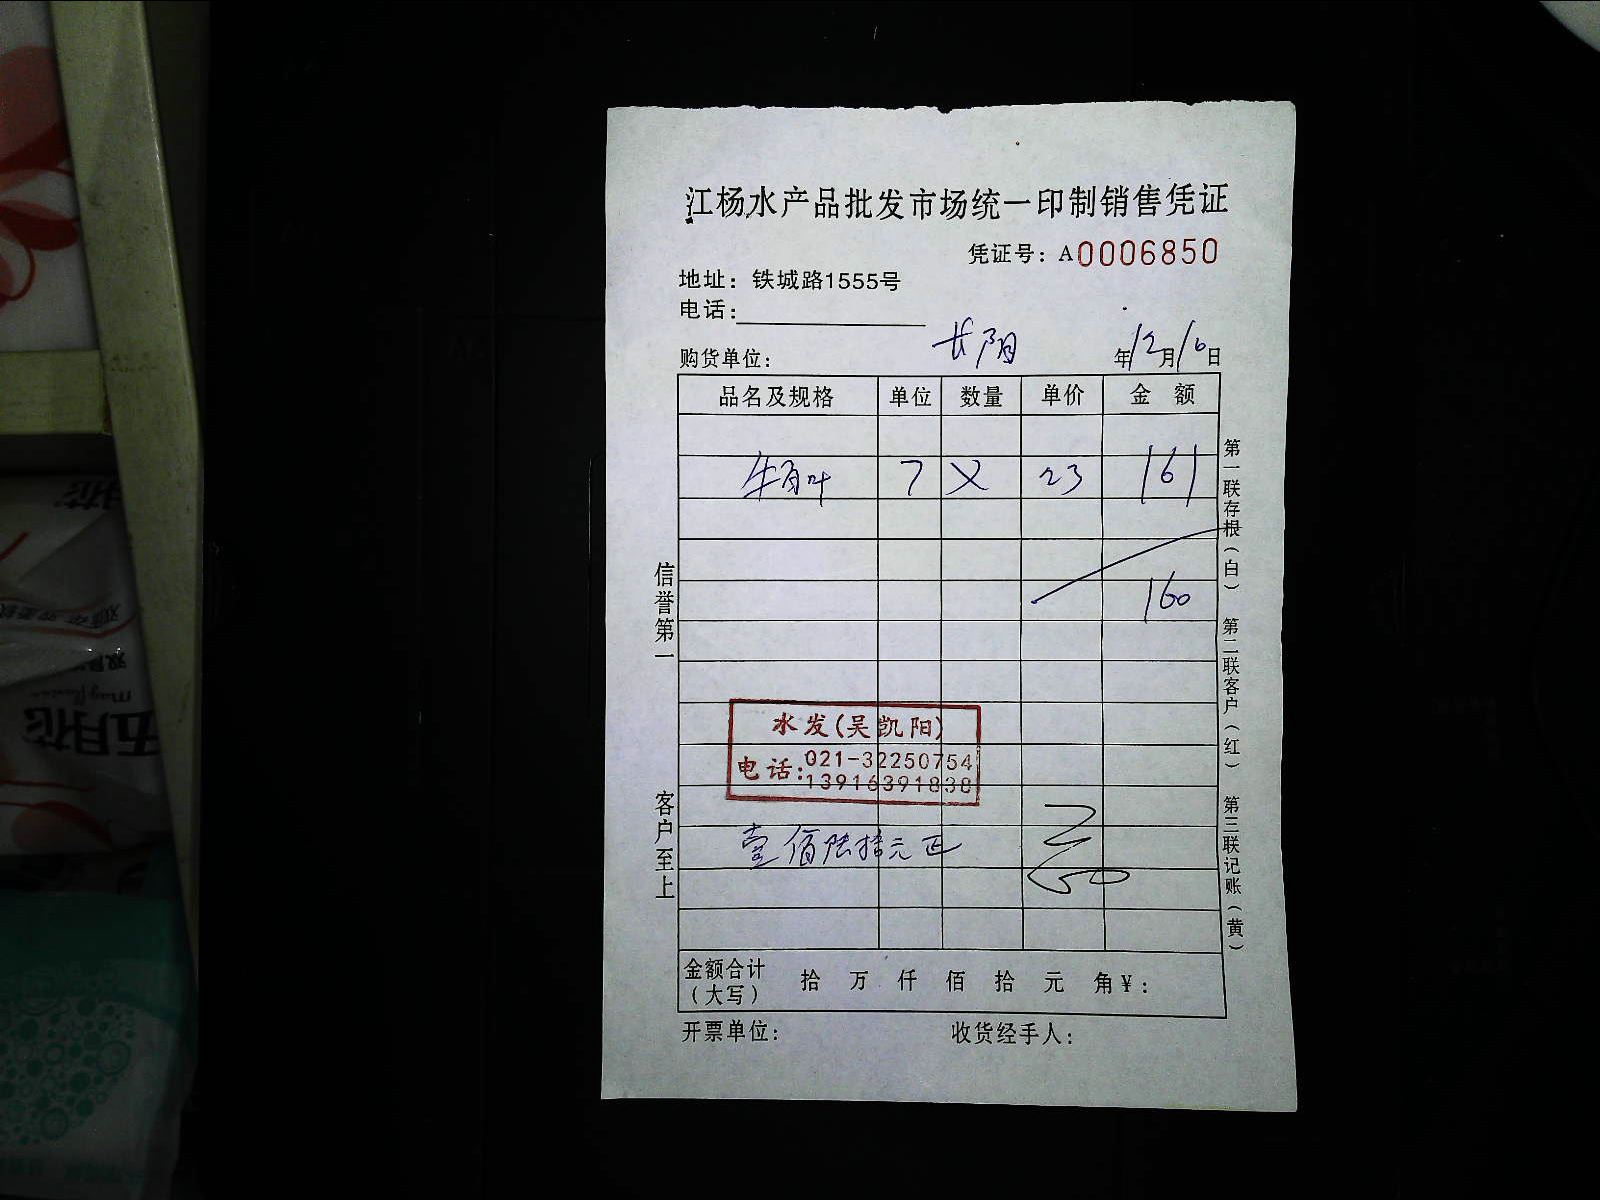 江杨水产品批发市场统一印制销售凭证
凭证号：A0006850
地址：铁城路1555号
电话：
购货单位： 长阴 年12月16日
品名及规格 单位 数量 单价 金 额
牛百叶 7 × 23 161
160
水发(吴凯阳)
电话：021-32250754
13916391838
壹佰陆拾元正
金额合计（大写） 拾 万 仟 佰 拾 元 角¥：
开票单位： 收货经手人：
信誉第一
客户至上
第一联存根（白） 第二联客户（红） 第三联记账（黄）
五月花